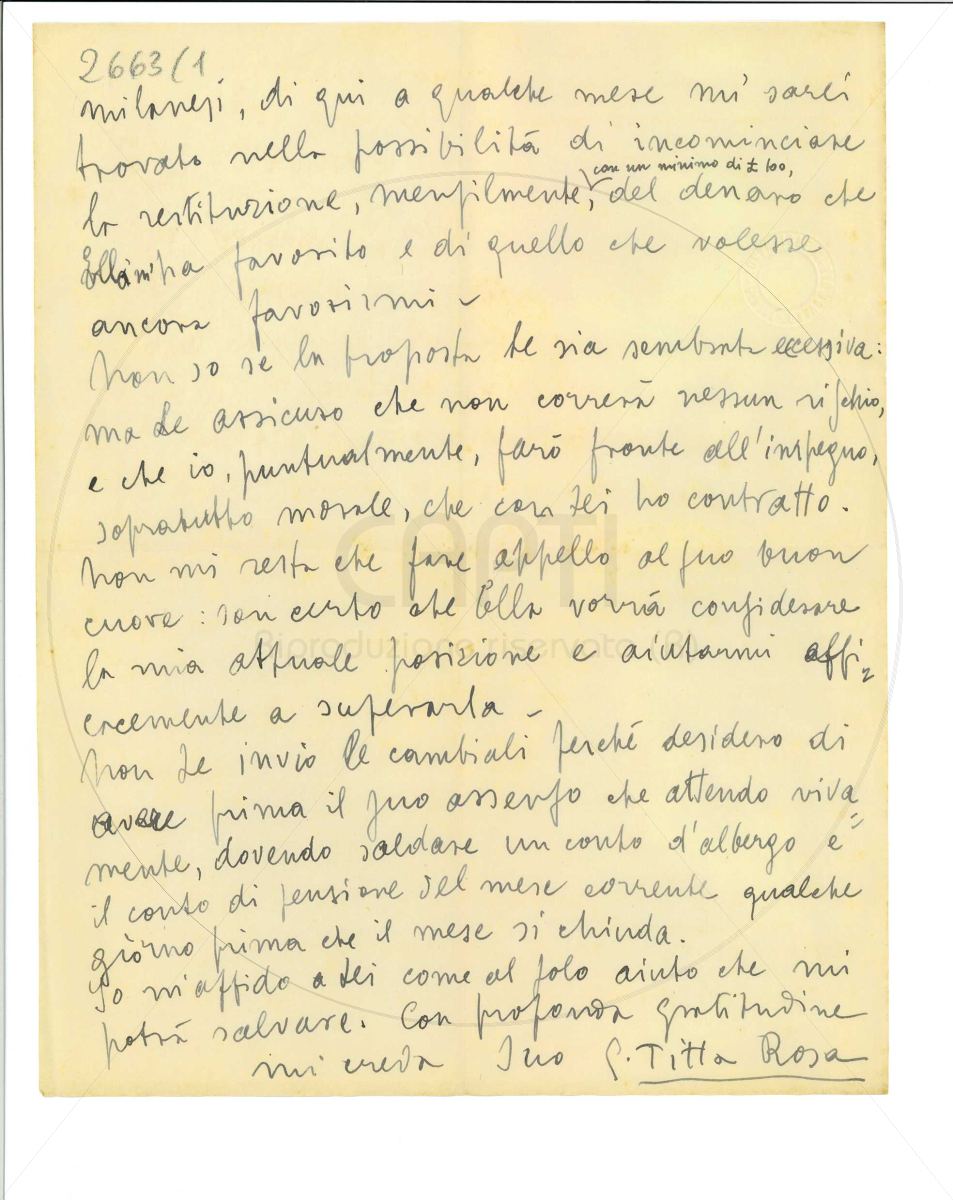 2663/1
milanesi, di qui a qualche mese mi sarei
trovato nella possibilità di incominciare
con un minimo di £ 100,
la restituzione, mensilmente, del denaro che
Ella m'ha favorito e di quello che volesse
ancora favorirmi -
Non so se la proposta Le sia sembrata eccessiva:
ma Le assicuro che non correrà nessun rischio,
e che io, puntualmente, farò fronte all'impegno,
sopratutto morale, che con Lei ho contratto.
Non mi resta che fare appello al Suo buon
cuore: son certo che Ella vorrà considerare
la mia attuale posizione e aiutarmi effi=
cacemente a superarla -
Non Le invio le cambiali perché desidero di
avere prima il Suo assenso che attendo viva=
mente, dovendo saldare un conto d'albergo e
il conto di pensione del mese corrente qualche
giorno prima che il mese si chiuda.
Io m'affido a Lei come al solo aiuto che mi
potrà salvare. Con profonda gratitudine
mi creda Suo G. Titta Rosa
CAPTI
Riproduzione riservata (R)